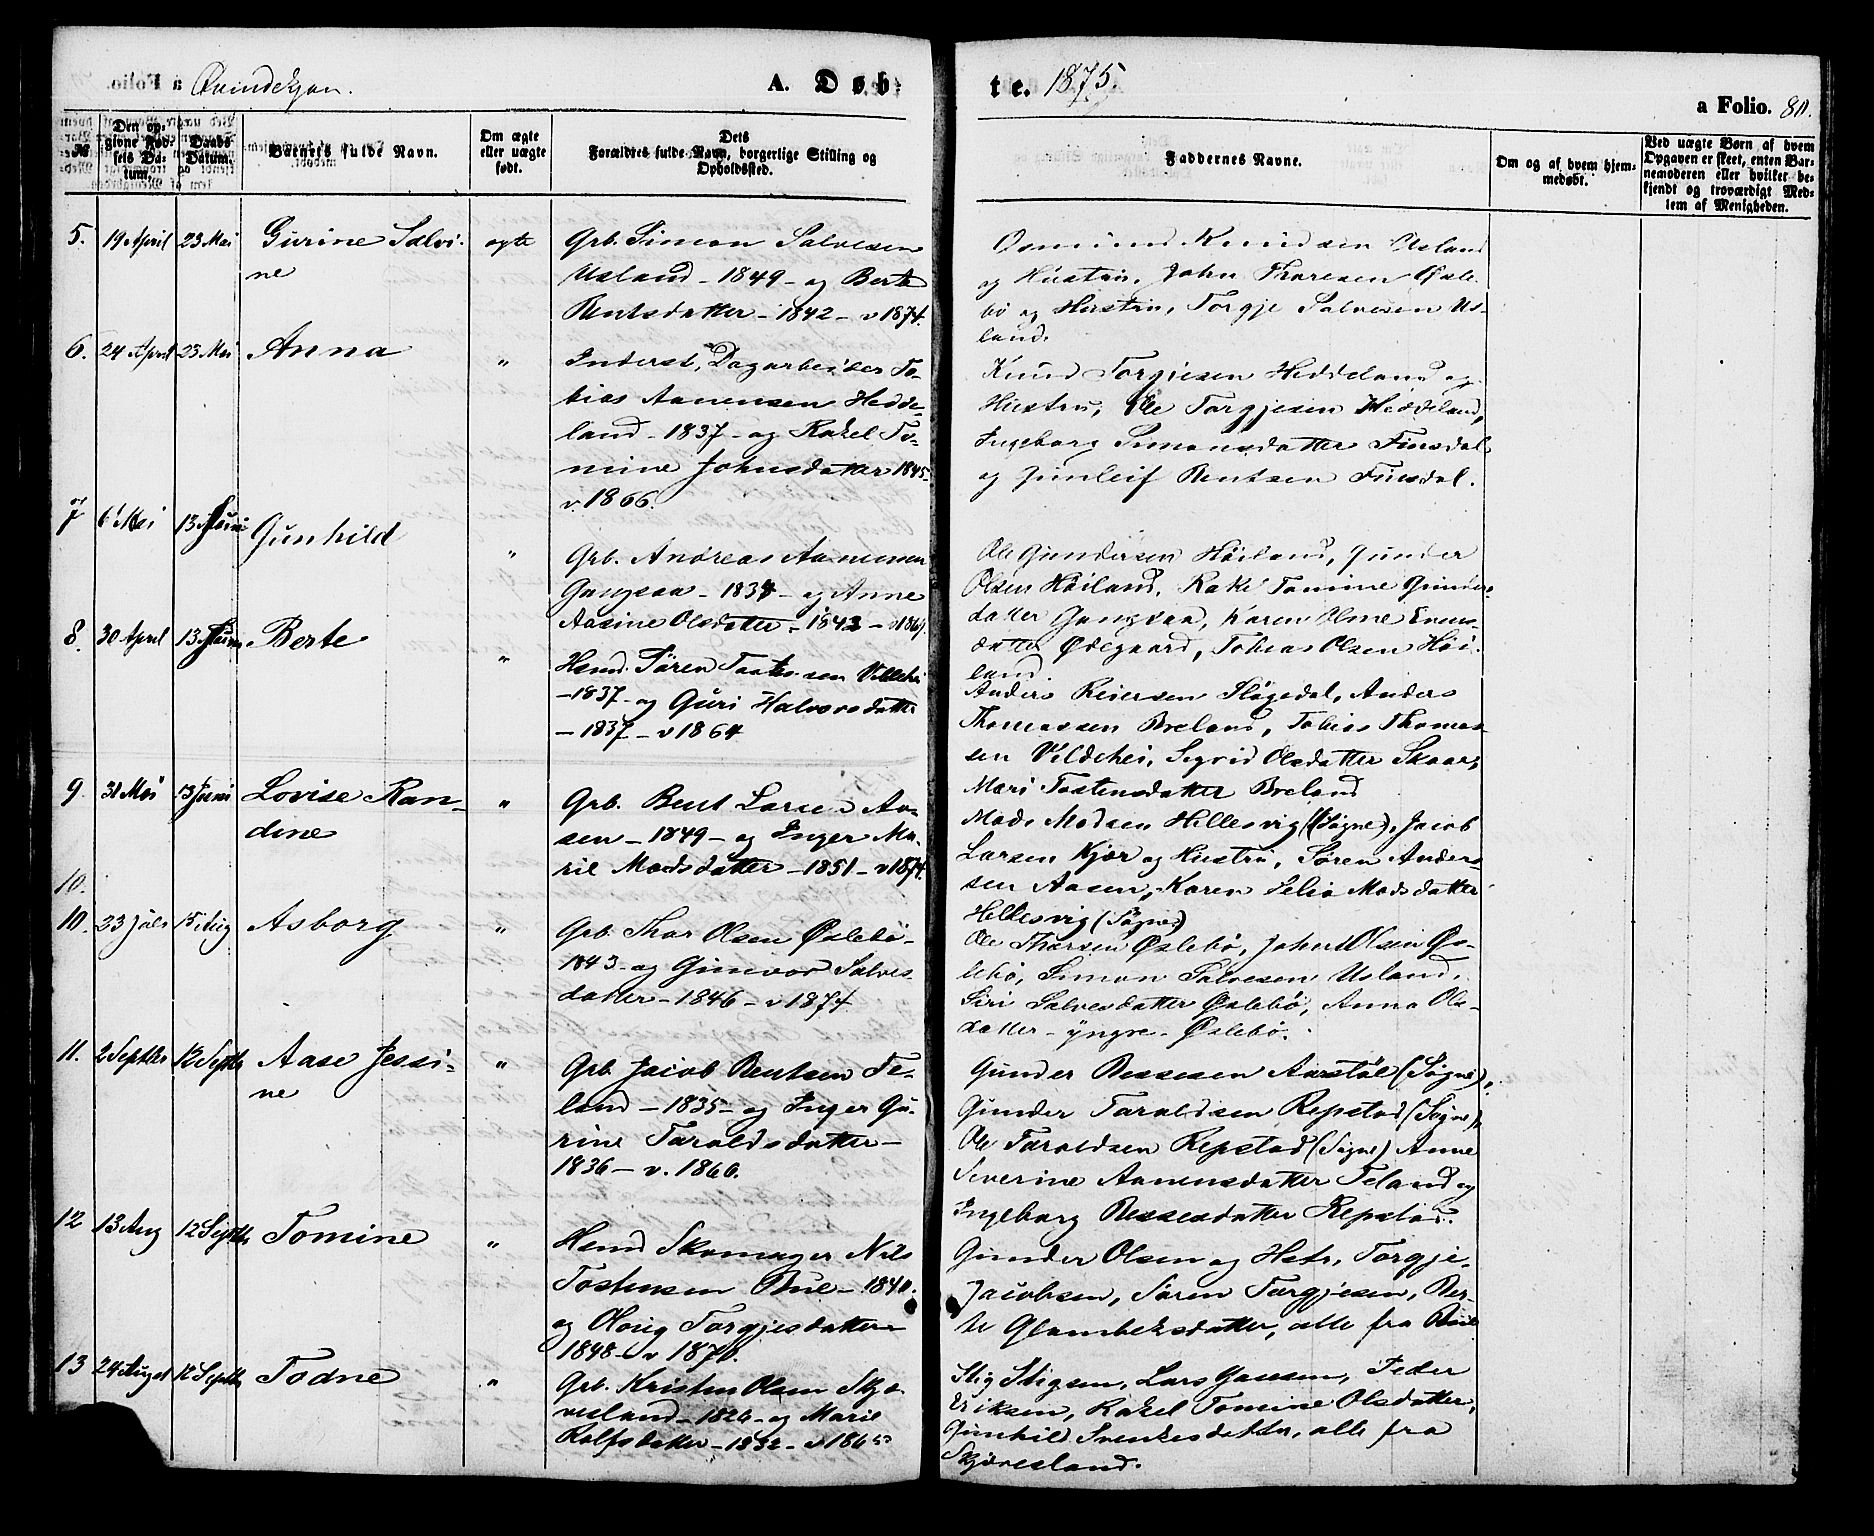 a Folio. Qvindekjøn. A. Døb-
te. 1875. a Folio. 80.
№ Den opgivne Fødsels Datum. Daabs Datum. Barnets fulde Navn. Om ægte eller uægte født. Dets Forældres fulde Navn, borgerlige Stilling og Opholdssted.
Faddernes Navne. Om og af hvem hjemmedøbt. Ved uægte Børn af hvem Opgaven er skeet, enten Barnemoderen eller hvilket bekjendt og troværdigt Medlem af Menigheden.
5. 19 April 23 Mai Gurine Salvi-
ne
ægte
Grb. Simon Salvesen
Usland - 1849 - og Berte
Bentsdatter - 1842 - v 1874.
Osmund Knudsen Usland
og Hustru, John Thoresen Øsle-
bø og Hustru, Torgje Salvesen Us-
land.
6. 24 April 23 Mai Anna "
Inderst, Dagarbeider To-
bias Aanensen Hedde-
land - 1837 - og Rakel To-
mine Johnsdatter 1845-
v. 1866.
Knud Torgjesen Heddeland og
Hustru, Ole Torgjesen Heddeland,
Ingeborg Simonsdatter Finsdal
og Gunleif Bentsen Finsdal.
7 6 Mai 13 Juni Gunhild "
Grb. Andreas Aanensen
Gangsaa - 1834 - og Anne
Aasine Olsdatter - 1843 - v 1869.
Ole Gundersen Høiland, Gunder
Olsen Høiland, Rakel Tomine Gunders-
datter Gangsaa, Karen Oline Evens-
datter Ødegaard, Tobias Olsen Høi-
land.
8. 30 April 13 Juni Berte "
Hsmd. Søren Tostensen Vildehei
- 1837 - og Guri Halvorsdatter
- 1837 - v 1864
Anders Reiersen Fløgedal, Anders
Thomassen Breland, Tobias Thomas-
sen Vildehei, Sigrid Olsdatter Skaar,
Mari Tostensdatter Breland
9 31 Mai 13 Juni Lovise Ran-
dine
"
Grb. Bent Larsen Aa-
sen - 1849 - og Inger Ma-
rie Madsdatter - 1851 - v 1874.
Mads Madsen Hellesvig (Søgne), Jacob
Larsen Kjær og Hustru, Søren Anders-
sen Aasen, Karen Selia Madsdatter
Hellesvig (Søgne)
10.
10. 23 Juli 15 Aug Asborg "
Grb. Thor Olsen Øslebø-
1843 - og Gunvor Salves-
datter - 1846 - v 1874.
Ole Thorsen Øslebø, John Olsen Øs-
lebø, Simon Salvesen Usland,
Siri Salvesdatter Øslebø, Anna Ols-
datter - yngre - Øslebø.
11. 2 Septbr 12 Septbr Aase Jessi-
ne
"
Grb. Jacob Bentsen Fe-
land - 1835 - og Inger Gu-
rine Taraldsdatter -
1836 - v. 1860.
Gunder Bessesen Aarstøl (Søgne),
Gunder Taraldsen Repstad (Søgne),
Ole Taraldsen Repstad (Søgne) Anne
Severine Aanensdatter Feland og
Ingeborg Bessesdatter Repstad.
12 13 Aug 12 Septbr Tomine "
Hsmd Skomager Nils
Tostensen Bue - 1840.
og Olovig Torgjesdatter
1848 - v 1870.
Gunder Olsen og Hstr, Torgje
Jacobsen, Søren Torgjesen, Ber-
te Glambeksdatter, alle fra Bue
13 24 August 12 Septbr Todne "
Grb. Kristen Olsen Skjæ-
vesland - 1826 - og Marie
Rolfsdatter - 1832 - v 1865
Stig Stigsen, Lars Hansen, Peder
Eriksen, Rakel Tomine Olsdatter,
Gunhild Svenkesdatter, alle fra
Skjævesland.